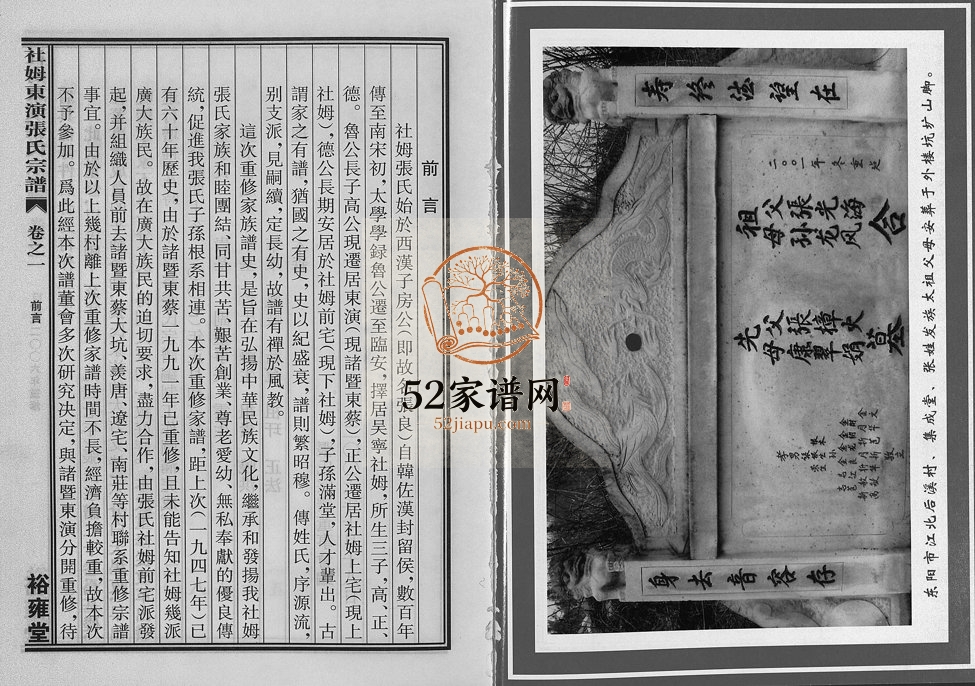 前言
社姆張氏始於西漢子房公(即故名張良)自韓佐漢封留侯，數百年
傳至南宋初，太學學録魯公遷至臨安，擇居吴寧社姆，所生三子，高、正、
德。魯公長子高公現遷居東演(現諸暨東蔡)，正公遷居社姆上宅(現上
社姆)，德公長期安居於社姆前宅(現下社姆)，子孫滿堂，人才輩出。古
謂家之有譜，猶國之有史，史以紀盛衰，譜則繁昭穆。傳姓氏，序源流，
別支派，見嗣續，定長幼，故譜有禪於風教。
這次重修家族譜史，是旨在弘揚中華民族文化，繼承和發揚我社姆
張氏家族和睦團結、同甘共苦、艱苦創業、尊老愛幼、無私奉獻的優良傳
統，促進我張氏子孫根系相連。本次重修家譜，距上次(一九四七年)已
有六十年歷史，由於諸暨東蔡一九九一年已重修，且未能告知社姆幾派
廣大族民。故在廣大族民的迫切要求，盡力合作，由張氏社姆前宅派發
起，并組織人員前去諸暨東蔡大坑、羨唐、遼宅、南莊等村聯系重修宗譜
事宜。由於以上幾村離上次重修家譜時間不長，經濟負擔較重，故本次
不予參加。爲此經本次譜董會多次研究決定，與諸暨東演分開重修，待
社姆東演張氏宗譜
卷之一
前言
裕雍堂
52家谱网
52jiapu.com
寿终法望在
二〇〇一年冬重建
祖父張光海
母孙龙凤
合墓
先父張樟火
母康翠娟
身去音容存
东阳市江北后溪村、集成堂、张姓发族太祖父母安葬于外楼坑扩山脚。